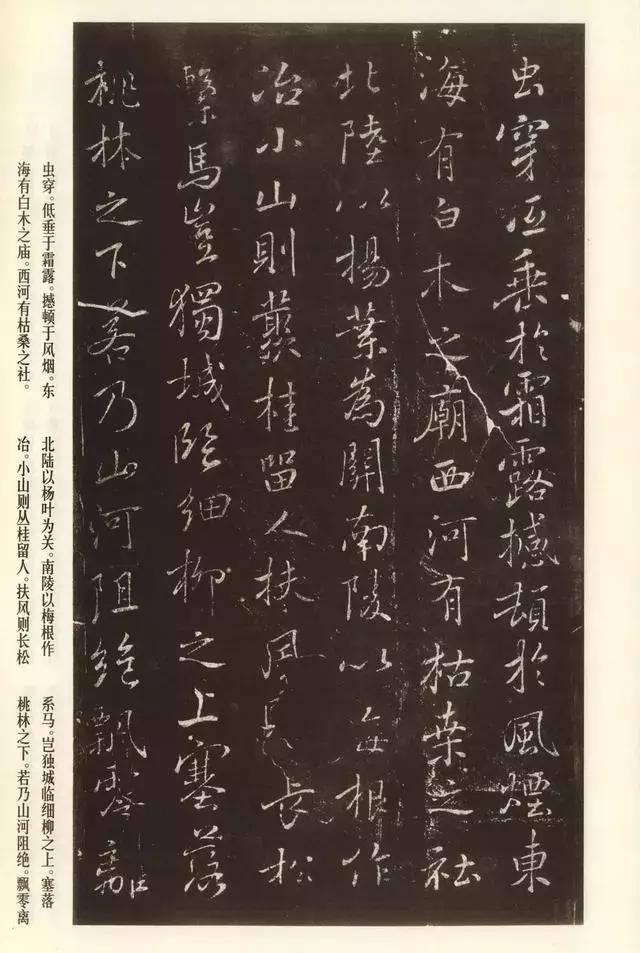 虫穿低垂於霜露撼頓於風煙東
海有白木之廟西河有枯桑之社
北陸以楊葉為關南陵以梅根作
冶小山則叢桂留人扶風則長松
繫馬豈獨城臨細柳之上塞落
桃林之下若乃山河阻絕飄零離
虫穿。低垂于霜露。撼顿于风烟。东
海有白木之庙。西河有枯桑之社。
北陆以杨叶为关。南陵以梅根作
冶。小山则丛桂留人。扶风则长松
系马。岂独城临细柳之上。塞落
桃林之下。若乃山河阻绝。飘零离